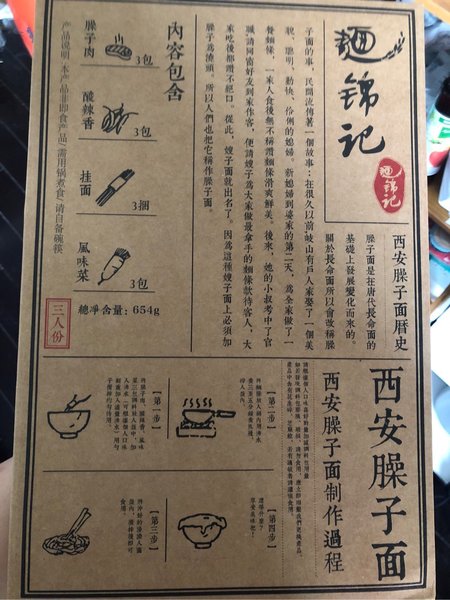 麵锦记
麵锦记
西安臊子面
西安臊子面曆史
臊子面是在唐代長命面的
基礎上發展變化而來的。
關於長命面所以會改稱臊
子面的事，民間流傳著一個故事：在很久以前岐山有戶人家娶了一個美
貌、聰明、勤快、伶俐的媳婦，新媳婦到婆家的第二天，為全家做了一
餐麵條，一家人食後無不稱讚麵條滑爽鮮美。後來，她的小叔考中了官
職請同窗好友到家作客，便請嫂子為大家做最拿手的麵條款待客人，大
家吃後都讚不絕口。從此，嫂子面就出名了。因為這種嫂子面上必須加
臊子為澆頭。所以人們也把它稱作臊子面。
內容包含
臊子肉
3包
酸辣香
3包
挂面
3捆
風味菜
3包
總淨含量：654g
三人份
产品说明：本产品非即食产品（需用锅煮食）請自备碗筷
西安臊子面制作過程
【第一步】
【第二步】
【第三步】
【第四步】